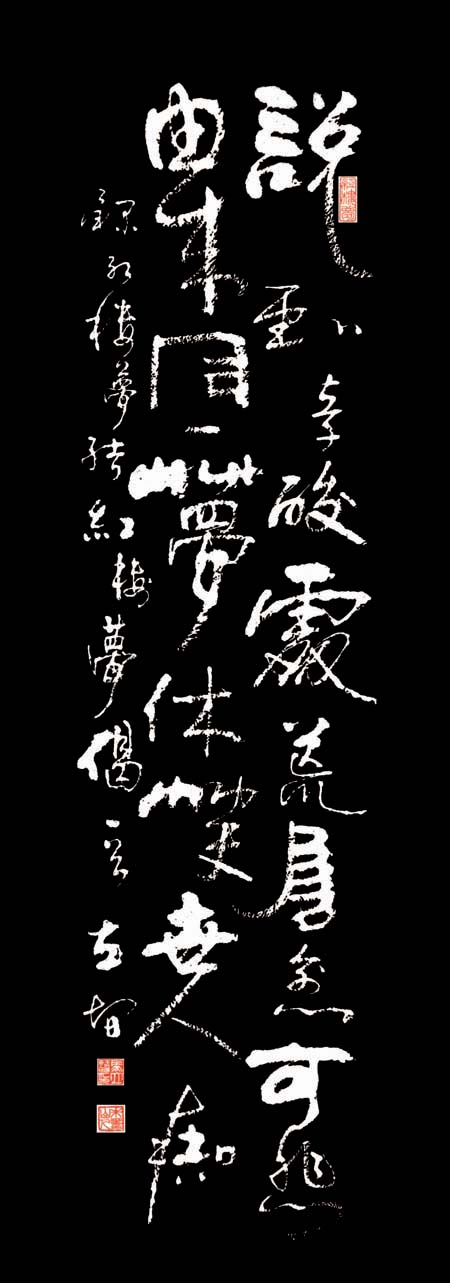 說到辛酸處荒唐愈可悲
由来同一夢休笑世人痴
錄紅樓夢結紅樓夢偈